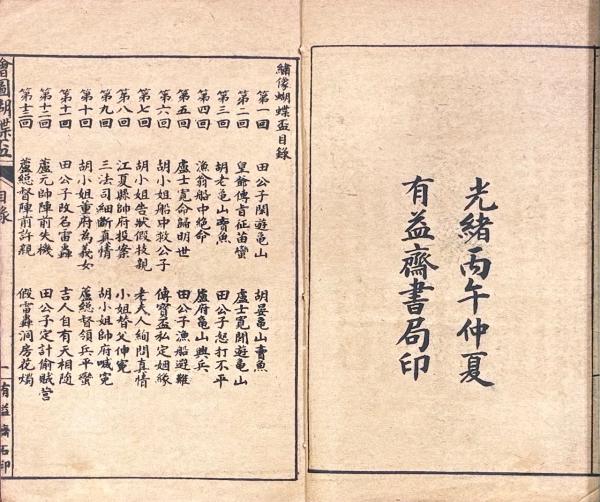 光緒丙午仲夏
有益齋書局印
繡像蝴蝶盃目錄
第一回 田公子閒遊龜山 胡晏龜山賣魚
第二回 皇爺傳旨征苗蠻 盧士寬閒遊龜山
第三回 胡老龜山賣魚 田公子怒打不平
第四回 漁翁船中絕命 盧府龜山興兵
第五回 盧士寬命歸明世 田公子漁船避難
第六回 胡小姐船中救公子 傳寶盃私定姻緣
第七回 胡小姐告狀假投親 老夫人絢問真情
第八回 江夏縣帥府投案 小姐替父伸冤
第九回 三法司細斷真情 胡小姐帥府喊冤
第十回 胡小姐董府為義女 蘆總督領兵平蠻
第十一回 田公子改名雷轟 吉人自有天相隨
第十二回 盧元帥陣前失機 田公子定計偷賊營
第十三回 蘆總督陣前許親 假雷轟洞房花燭
繪圖蝴蝶盃
目錄
一
有益齋石印